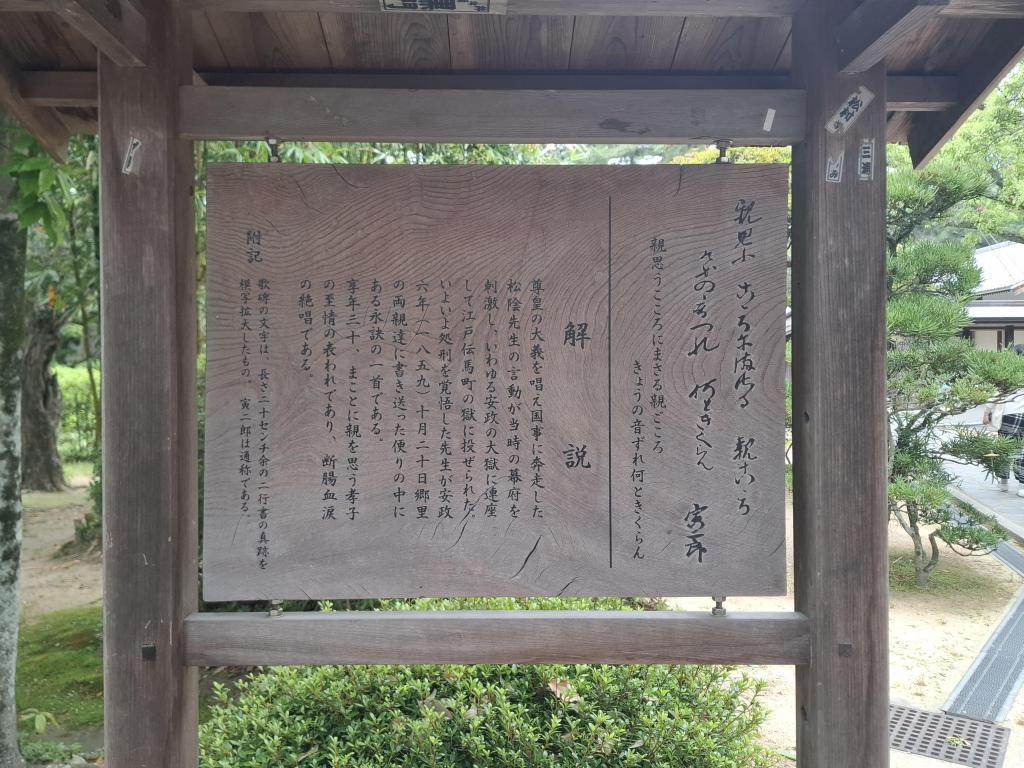 親思ふ こゝろにまさる 親こゝろ
けふの音つれ 何ときくらん 寅二郎
親思うこころにまさる親ごころ
きょうの音ずれ何ときくらん
解説
尊皇の大義を唱え国事に奔走した
松陰先生の言動が当時の幕府を
刺激し、いわゆる安政の大獄に連座
して江戸伝馬町の獄に投ぜられた。
いよいよ処刑を覚悟した先生が安政
六年(一八五九)十月二十日郷里
の両親達に書き送った便りの中に
ある永訣の一首である。
享年三十、まことに親を思う孝子
の至情の表われであり、断腸血涙
の絶唱である。
附記
歌碑の文字は、長さ二十センチ余の二行書の真跡を
模写拡大したもの。寅二郎は通称である。
松村